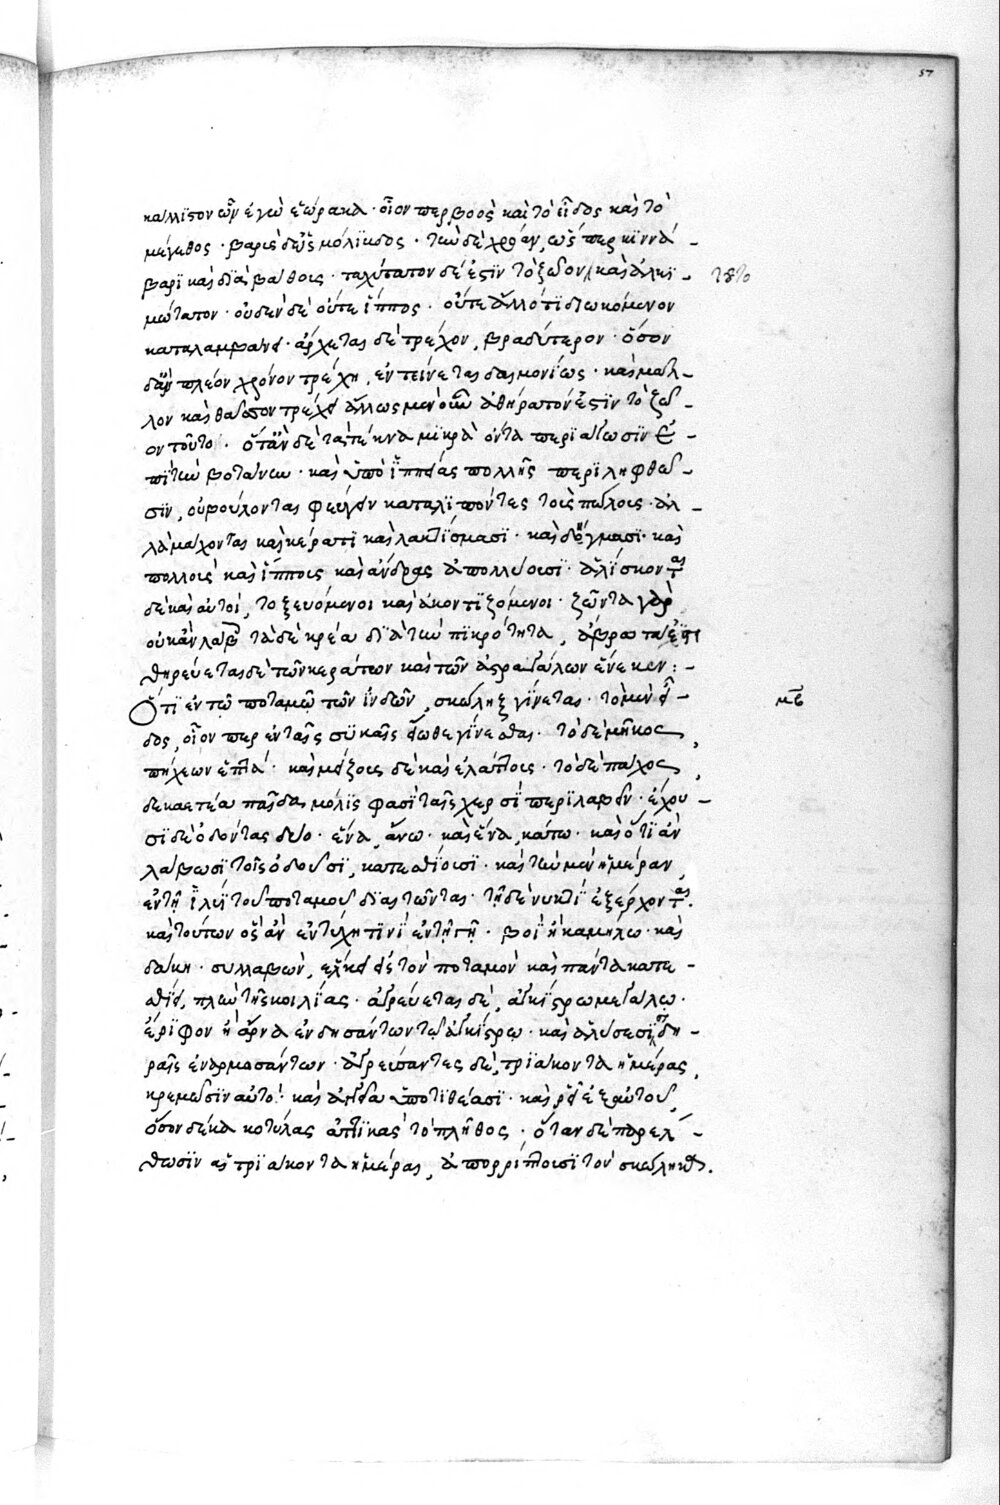 57
κάλλιστον ὧν ἐγὼ ἑώρακα · οἷον περ βοὸς καὶ τὸ εἶδος καὶ τὸ
μέγεθος · βαρὺς δ' ὡς μόλιβδος · τὴν δὲ χρόαν, ὥσπερ κιννά-
βαρι καὶ διὰ βάθους · ταχύτατον δέ ἐστιν τὸ ζῶον καὶ ἀλκι-
μώτατον · οὐδὲν δὲ οὔτε ἵππος · οὔτε ἄλλό τι διωκόμενον
καταλαμβάνει · ἄρχεται δὲ τρέχον, βραδύτερον · ὅσον
δ' ἂν πλέον χρόνον τρέχη, ἐντείνεται δαιμονίως · καὶ μᾶλ-
λον καὶ θᾶσσον τρέχει ἄλλως μὲν οὖν ἀθήρατόν ἐστιν τὸ ζῶ-
ον τοῦτο · ὅταν δὲ τὰ τέκνα μικρὰ ὄντα περιάγωσιν ἐ-
πὶ τὴν βοτάνην · καὶ ὑπὸ ἱππείας πολλῆς περιληφθῶ-
σιν, οὐ βούλονται φεύγειν καταλιπόντες τοὺς πώλους · ἀλ-
λὰ μάχονται καὶ κέρατι καὶ λακτίσμασι · καὶ δήγμασι · καὶ
πολλοὺς καὶ ἵππους καὶ ἄνδρας ἀπολλύουσι · ἁλίσκονται
δὲ καὶ αὐτοὶ, τοξευόμενοι καὶ ἀκοντιζόμενοι · ζῶντα γὰρ
οὐκ ἂν λάβοις τὰ δὲ κρέα διὰ τὴν πικρότητα, ἄβρωτά ἐστι
θηρεύεται δὲ τῶν κεράτων καὶ τῶν ἀστραγάλων ἕνεκεν : -
Ὅτι ἐν τῷ ποταμῷ τῶν ἰνδῶν, σκώληξ γίνεται · τὸ μὲν εἶ-
δος, οἷον περ ἐν ταῖς συκαῖς εἴωθε γίνεσθαι · τὸ δὲ μῆκος,
πήχεων ἑπτά · καὶ μείζους δὲ καὶ ἐλάττους · τὸ δὲ πάχος,
δεκαετέα παῖδα μόλις φασὶ ταῖς χερσὶ περιλαβεῖν · ἔχου-
σι δὲ ὀδόντας δύο · ἕνα, ἄνω · καὶ ἕνα, κάτω · καὶ ὅτι ἂν
λάβωσι τοῖς ὀδοῦσι, κατεσθίουσι · καὶ τὴν μὲν ἡμέραν,
ἐν τῇ ἰλύι τοῦ ποταμοῦ διαιτῶνται · τῇ δὲ νυκτὶ ἐξέρχονται.
καὶ τούτων ὃς ἂν ἐντύχη τινὶ ἐν τῇ γῇ · βοῒ ἢ καμήλω · καὶ
δάκη · συλλαβὼν, ἕλκει εἰς τὸν ποταμὸν καὶ πάντα κατε-
σθίει, πλὴν τῆς κοιλίας · ἀγρεύεται δὲ, ἀγκίστρω μεγάλω ·
ἔριφον ἢ ἄρνα ἐνδησάντων τῷ ἀγκίστρῳ · καὶ ἁλύσεσι σιδη-
ραῖς ἐναρμοσάντων · ἀγρεύσαντες δὲ, τριάκοντα ἡμέρας,
κρεμῶσιν αὐτό · καὶ ἀγγεῖα ὑποτιθέασι · καὶ ῥεῖ ἐξ αὐτοῦ,
ὅσον δέκα κοτύλας ἀττικὰς τὸ πλῆθος · ὅταν δὲ παρέλ-
θωσιν αἱ τριάκοντα ἡμέραι, ἀπορρίπτουσι τὸν σκώληκα.